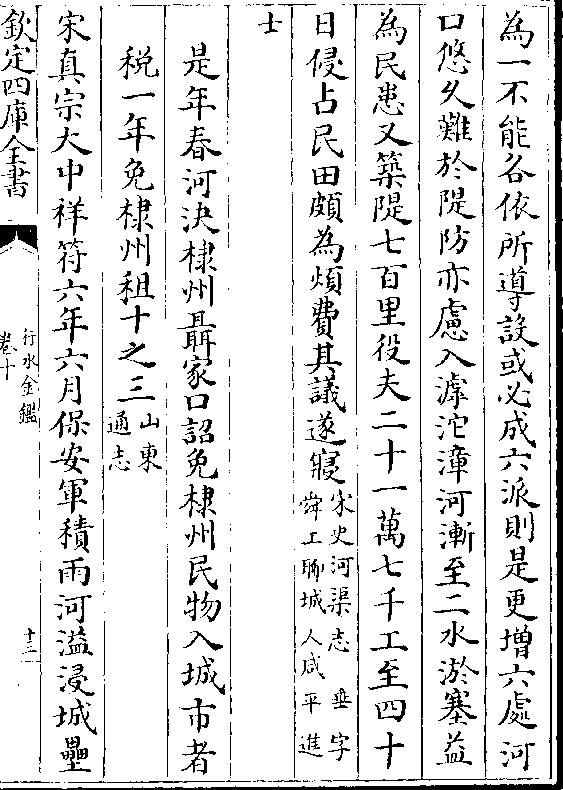 為一不能各依所導設或必成六派則是更增六處河
口悠久難於隄防亦慮入滹沱漳河漸至二水淤塞益
為民患又築隄七百里役夫二十一萬七千工至四十
日侵占民田頗為煩費其議遂寢宋史河渠志 垂字
舜工聊城人咸平進
士
是年春河決棣州聶家口詔免棣州民物入城市者
稅一年免棣州租十之三山東
通志
宋真宗大中祥符六年六月保安軍積雨河溢浸城壘
欽定四庫全書
行水金鑑
卷十
十三